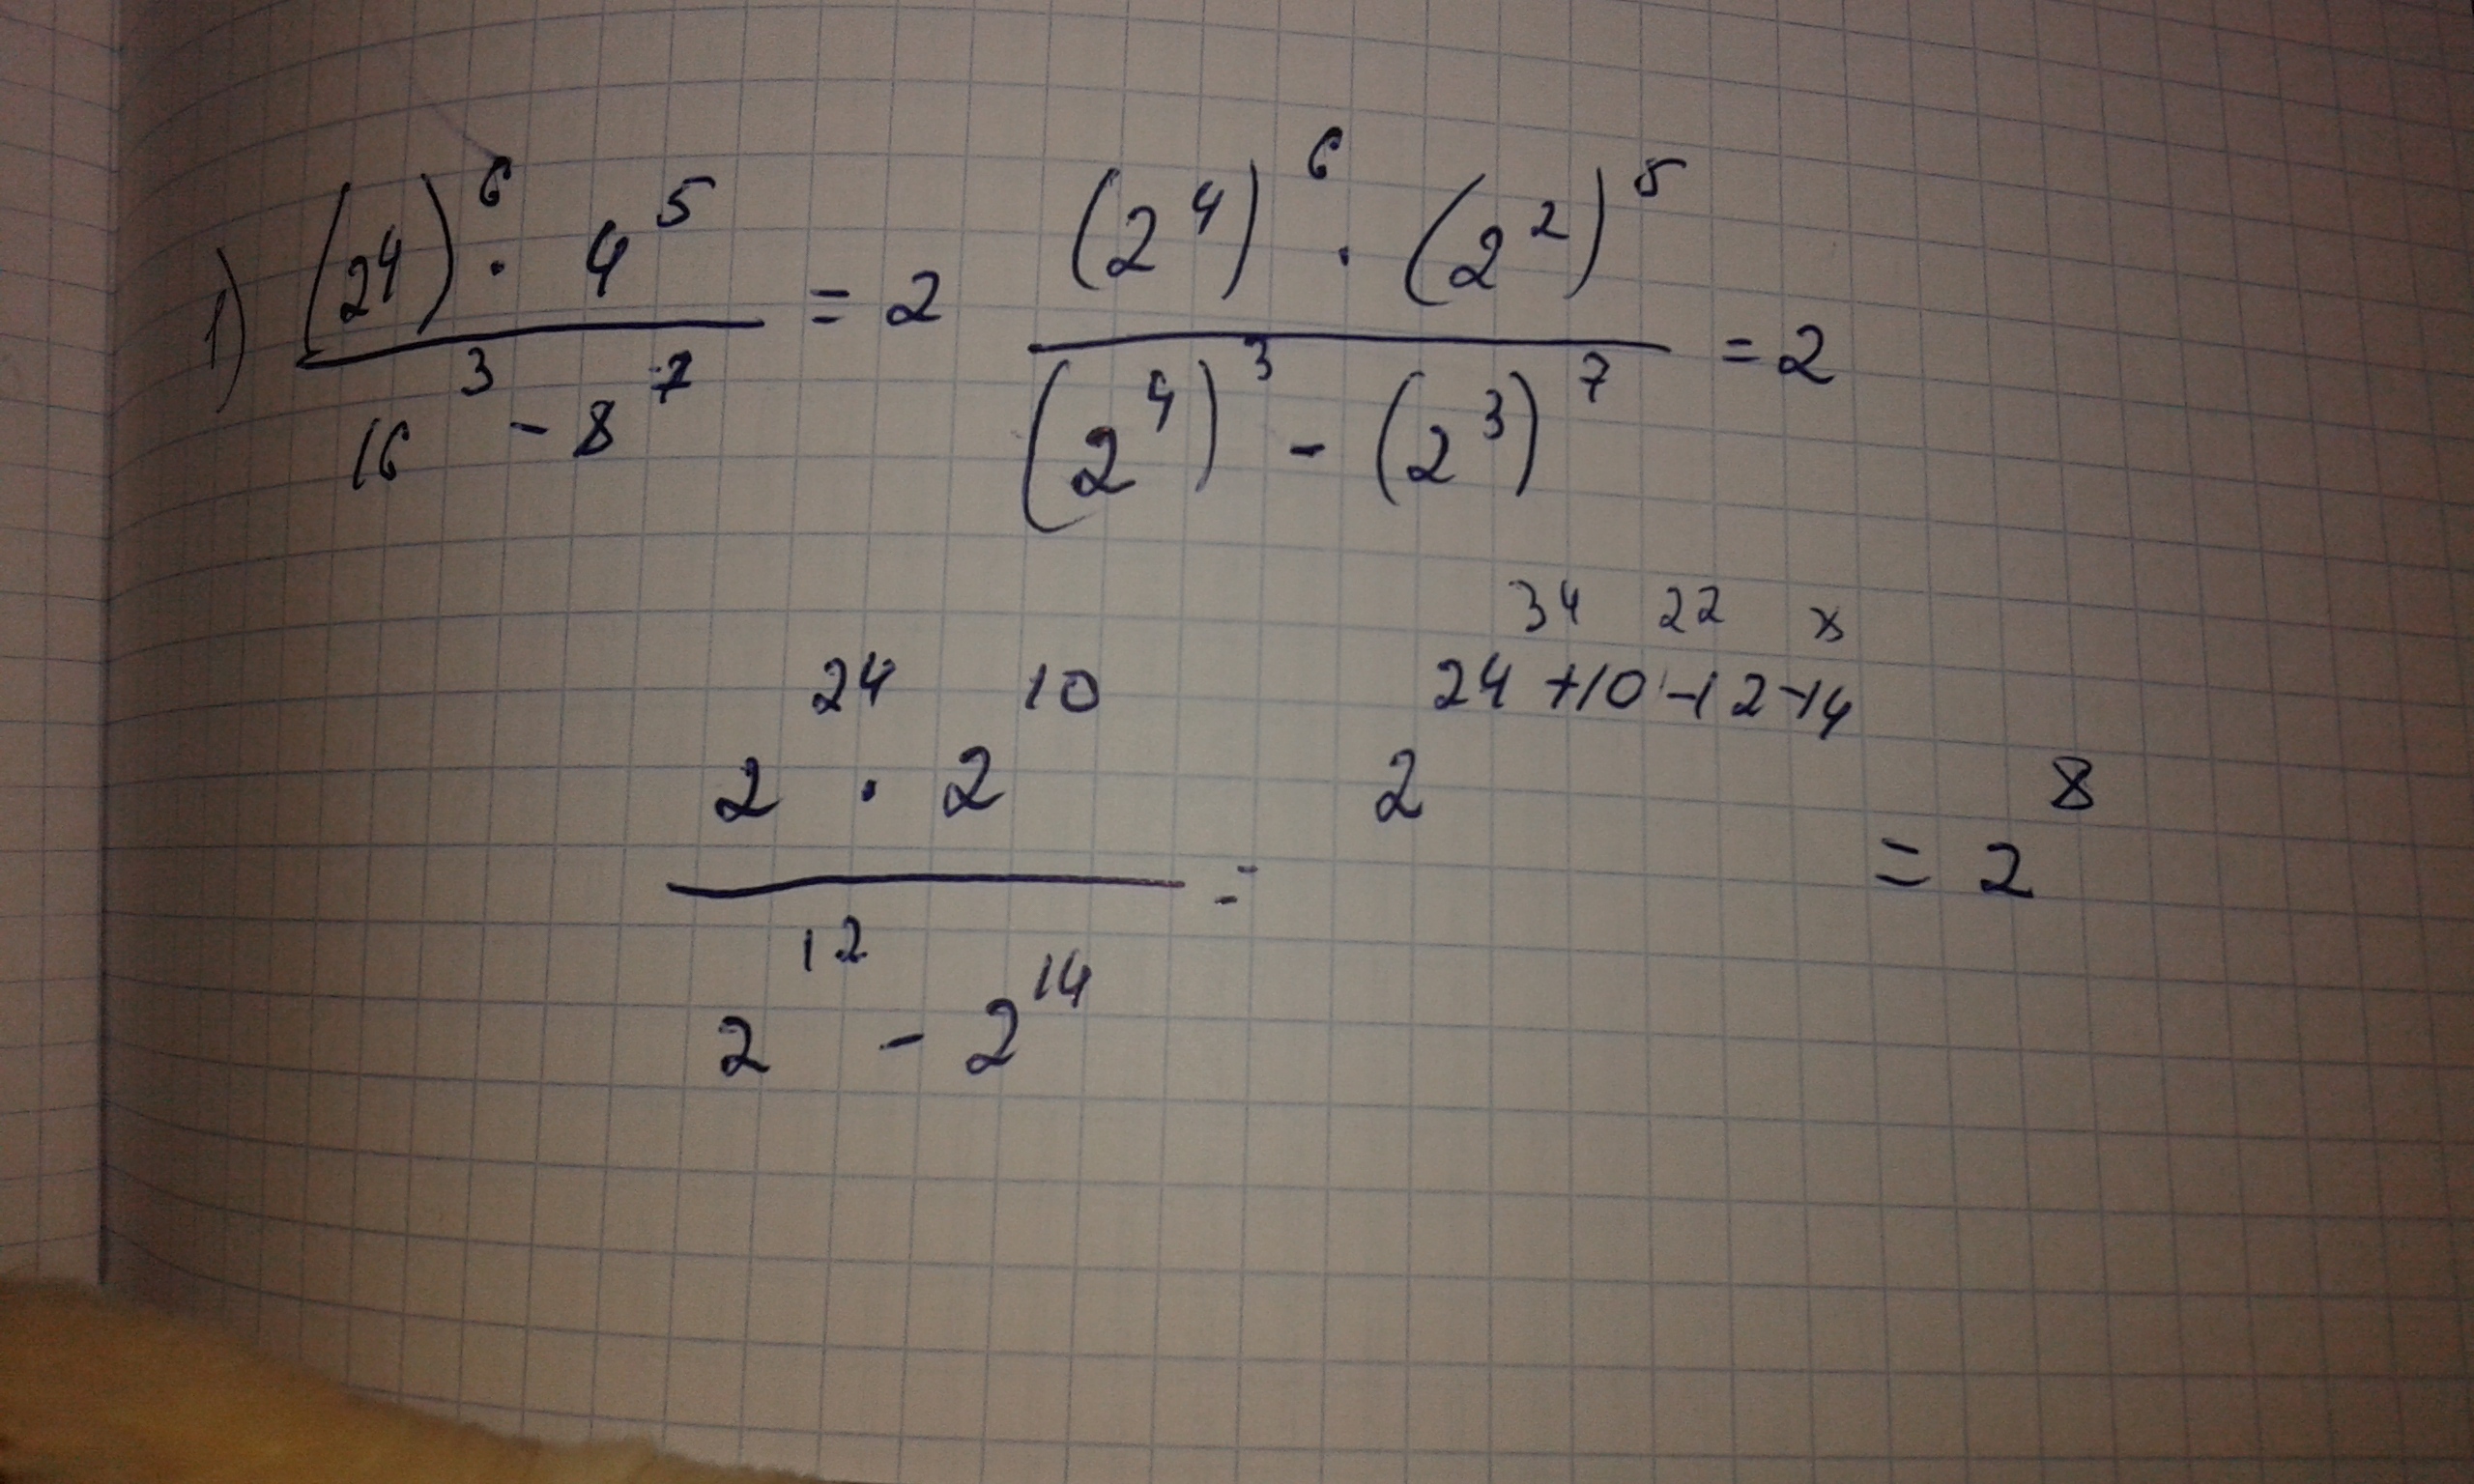 1) (2⁴)⁶ · 4⁵ / 16³ - 8⁷ = 2 (2⁴)⁶ · (2²)⁵ / (2⁴)³ - (2³)⁷ = 2
34 22
2²⁴ · 2¹⁰ / 2¹² - 2¹⁴ = 2²⁴⁺¹⁰⁻¹²⁻¹⁴ = 2⁸